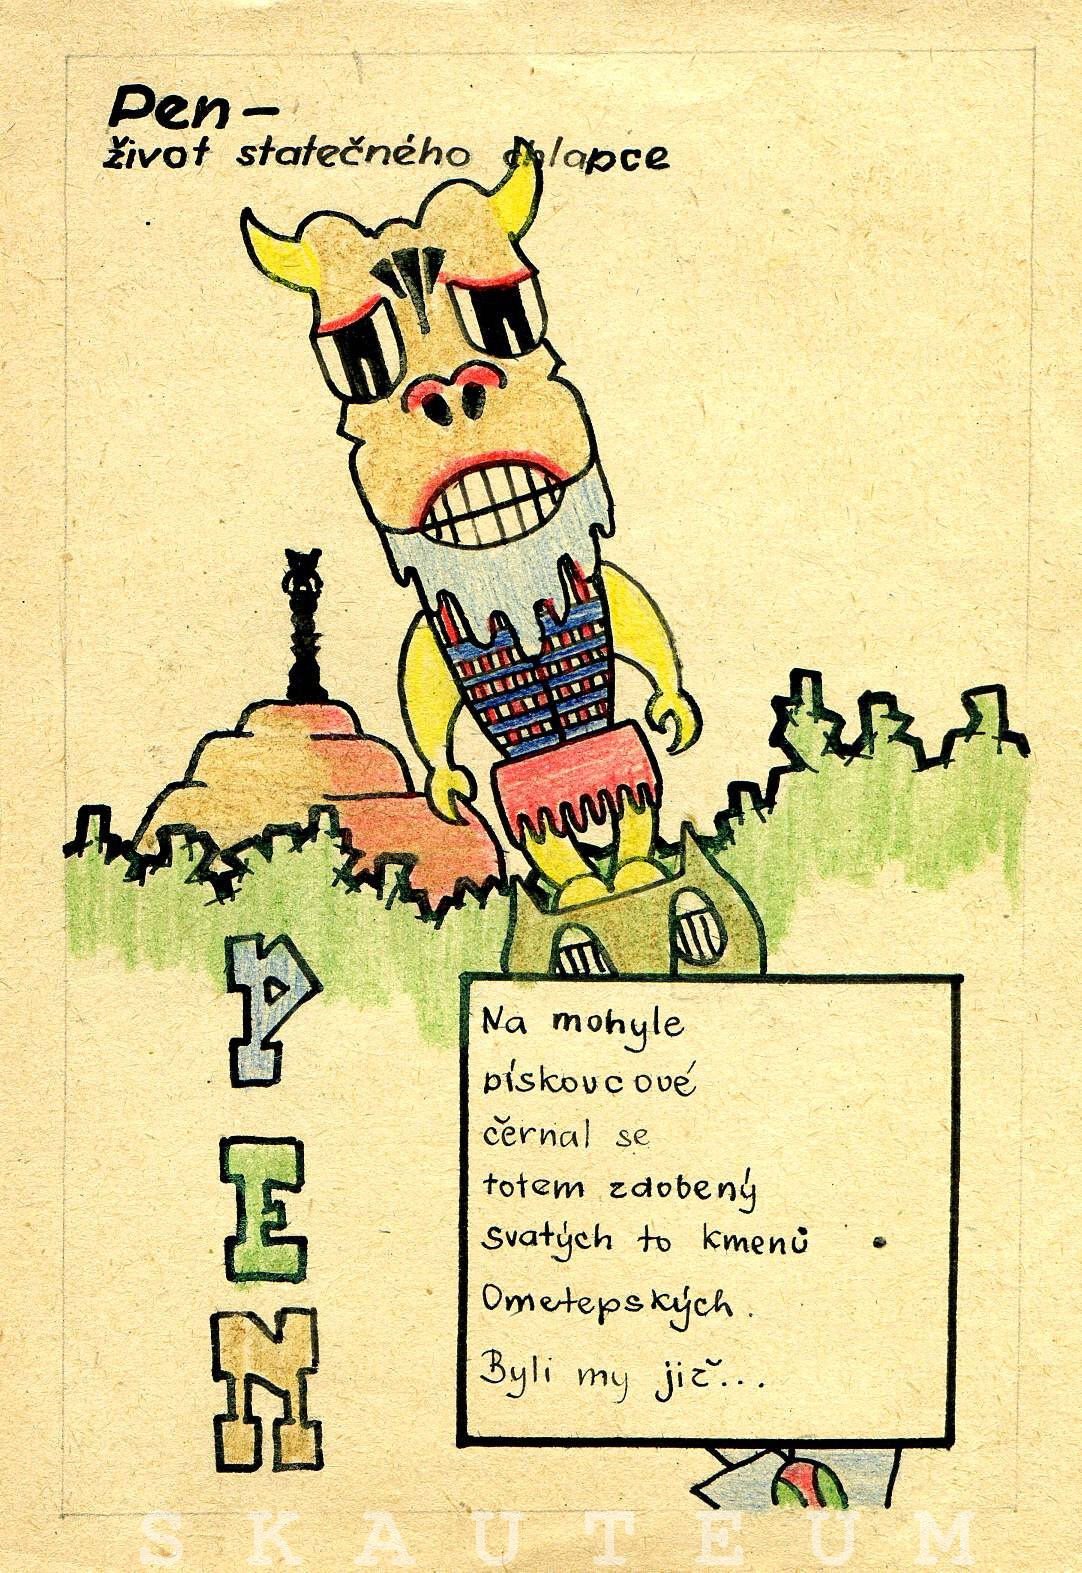 Pen –
život statečného chlapce
P
E
N
Na mohyle
pískovcové
černal se
totem zdobený
svatých to kmenů
Ometepských.
Byli my již...
SKAUTEUM